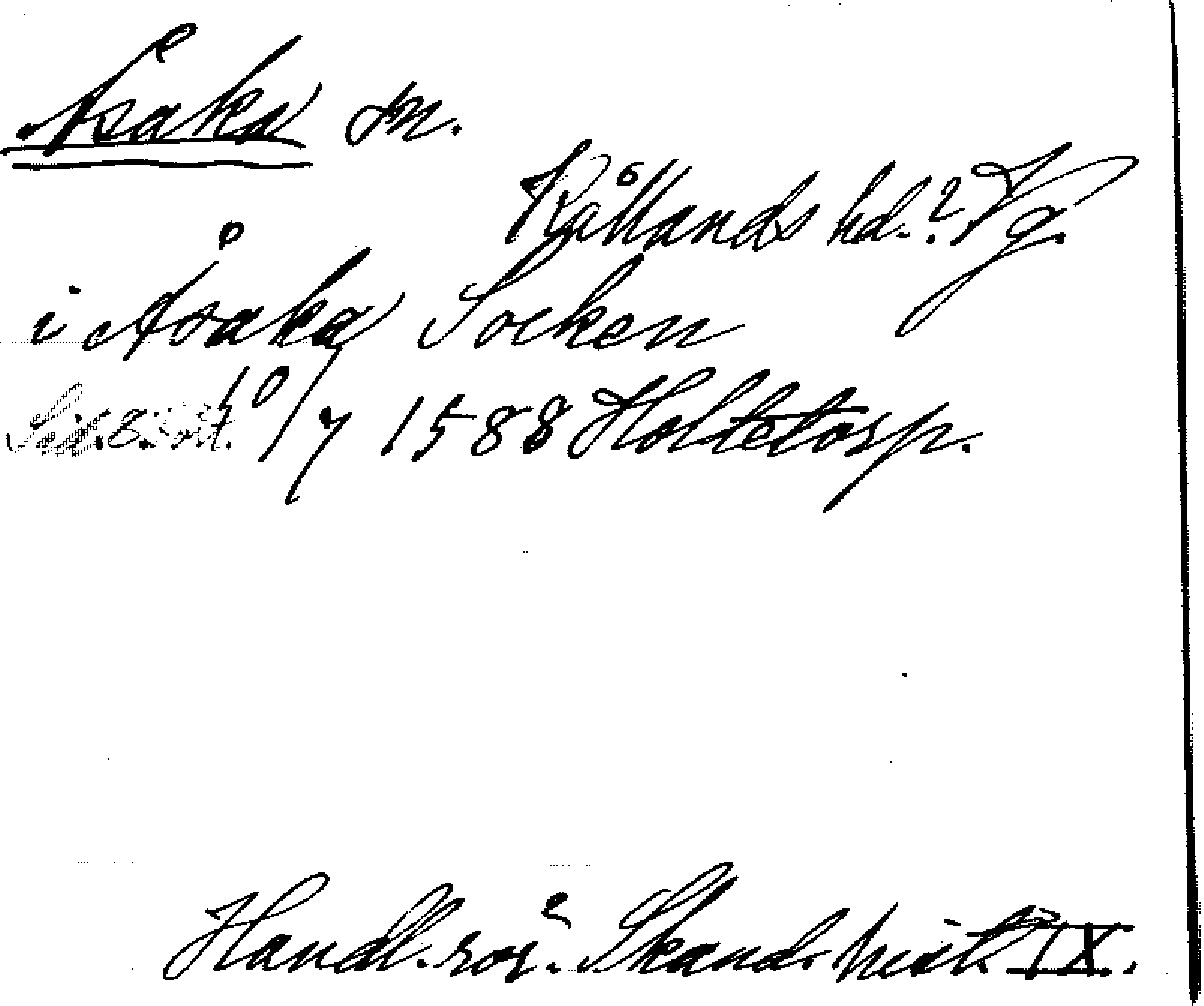 Åsaka sn.
Kållands hd.? Vg.
i Åsaka Socken
10/7 1588 Holtetorp.
Handl. rör. Skand. hist. IX.